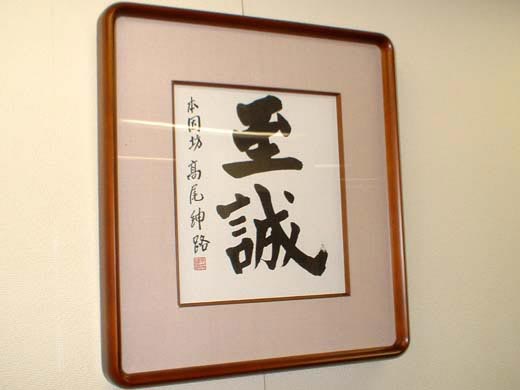 至誠
本因坊 高尾紳路